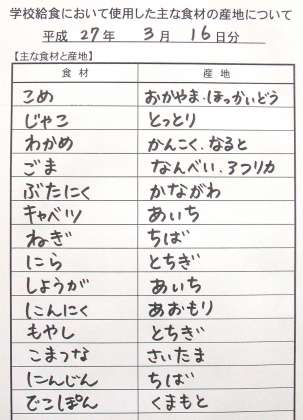 学校給食において使用した主な食材の産地について
平成 27年 3月 16日分
【主な食材と産地】
食材 産地
こめ おかやま・ほっかいどう
じゃこ とっとり
わかめ かんこく・なると
ごま なんべい・アフリカ
ぶたにく かながわ
キャベツ あいち
ねぎ ちば
にら とちぎ
しょうが あいち
にんにく あおもり
もやし とちぎ
こまつな さいたま
にんじん ちば
でこぽん くまもと